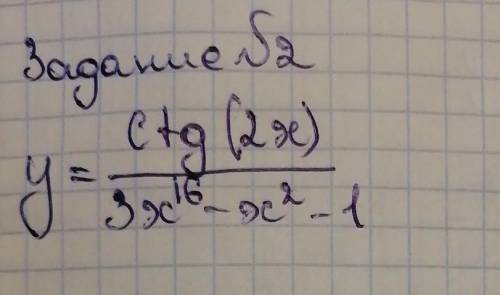 Задание №2
y = ctg(2x) / 3x^16 - x^2 - 1